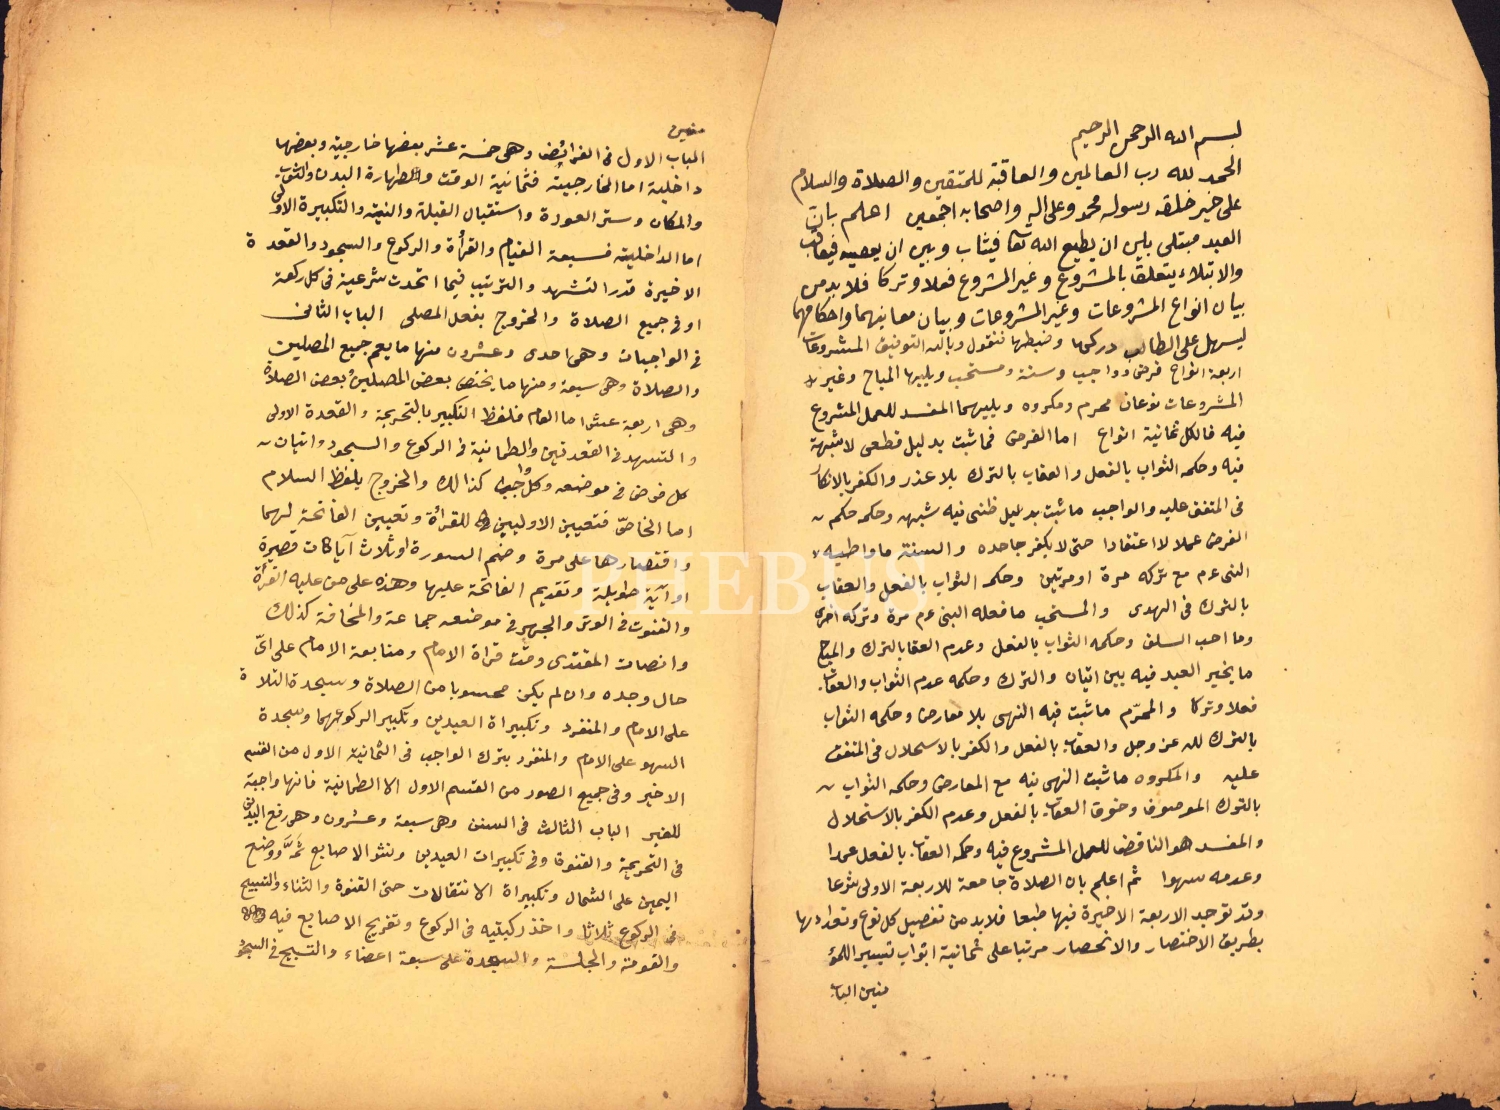 بسم الله الرحمن الرحيم
الحمد لله رب العالمين والعاقبة للمتقين والصلاة والسلام
على خير خلقه رسوله محمد وعلى اله واصحابه اجمعين اعلم بان
العبد مبتلى بين ان يطيع الله تعا فيثاب وبين ان يعصيه فيعاقب
والابتلاء يتعلق بالمشروع وغير المشروع فعلا وتركا فلا بد من
بيان انواع المشروعات وغير المشروعات وبيان معانيهما واحكامهما
ليسهل على الطالب دركها وضبطها فنقول وبالله التوفيق المشروعات
اربعة انواع فرض وواجب وسنة ومستحب ويليها المباح وغير
المشروعات نوعان محرم ومكروه ويليهما المفسد للعمل المشروع
فيه فالكل ثمانية انواع اما الفرض فما ثبت بدليل قطعى لا شبهة
فيه وحكمه الثواب بالفعل والعقاب بالترك بلا عذر والكفر بالانكار
فى المتفق عليه والواجب ما ثبت بدليل ظنى فيه شبهه وحكمه حكم
الفرض عملا لا اعتقادا حتى لا يكفر جاحده والسنة ما واظب
النبى عم مع تركه مرة او مرتين وحكمه الثواب بالفعل والعقاب
بالترك فى الهدى والمستحب ما فعله النبى عم مرة وتركه اخرى
وما احب السلف وحكمه الثواب بالفعل وعدم العقاب بالترك والمباح
ما يخير العبد فيه بين اتيان والترك وحكمه عدم الثواب والعقاب
فعلا وتركا والمحرّم ما ثبت فيه النهى بلا معارض وحكمه الثواب
بالترك لله عز وجل والعقاب بالفعل والكفر بالاستحلال فى المتفق
عليه والمكروه ما ثبت النهى فيه مع المعارض وحكمه الثواب
بالترك الموصوف وخوف العقاب بالفعل وعدم الكفر بالاستحلال
والمفسد هو الناقض للعمل المشروع فيه وحكمه العقاب بالفعل عمدا
وعدمه سهوا ثم اعلم بان الصلاة جامعة للاربعة الاولى شرعا
وقد توجد الاربعة الاخيرة فيها طبعا فلا بد من تفصيل كل نوع وتعدادها
بطريق الاختصار والانحصار مرتبا على ثمانية ابواب تيسيرا للمؤ
منين الباب
منين
الباب الاول فى الفرائض وهى خمسة عشر بعضها خارجية وبعضها
داخلية اما الخارجية فثمانية الوقت والطهارة البدن والثوب
والمكان وستر العورة واستقبال القبلة والنية والتكبيرة الاولى
اما الداخلية فسبعة القيام والقرأة والركوع والسجود والقعدة
الاخيرة قدر التشهد والترتيب فيما اتحدت شرعية فى كل ركعة
او فى جميع الصلاة والخروج بفعل المصلى الباب الثانى
فى الواجبات وهى احدى وعشرون منها ما يعم جميع المصلين
والصلاة وهى سبعة ومنها ما يختص بعض المصلين بعض الصلاة
وهى اربعة عشر اما العام فلفظ التكبير بالتحريمة والقعدة الاولى
والتشهد فى القعدتين والطمانية فى الركوع والسجود واتيان
كل فرض فى موضعه وكل واجب كذالك والخروج بلفظ السلام
اما الخاصّ فتعيين الاوليين للقرأة وتعيين الفاتحة لهما
واقتصارها على مرة وضم السورة او ثلاث آيات قصيرة
او آية طويلة وتقديم الفاتحة عليها وهذه على من عليه القرأة
والقنوت فى الوتر والجهر فى موضعه جماعة والمخافة كذلك
وانصات المقتدى وقت قراة الامام ومتابعة الامام على اىّ
حال وجده وان لم يكن محسوبا من الصلاة وسجدة التلاة
على الامام والمنفرد وتكبيراة العيدين وتكبير الركوعهما وسجدة
السهو على الامام والمنفرد بترك الواجب فى الثمانية الاول من القسم
الاخير وفى جميع الصور من القسم الاول الا الطمانية فانها واجبة
للغير الباب الثالث فى السنن وهى سبعة وعشرون وهى رفع اليدين
فى التحريمة والقنوة وفى تكبيرات العيدين ونشر الاصابع ثمّة ووضع
اليمين على الشمال وتكبيراة الانتقالات حتى القنوة والثناء والتسبيح
فى الركوع ثلاثا واخذ ركبتيه فى الركوع وتفريج الاصابع فيه
والقومة والجلسة والسجدة على سبعة اعضاء والتسبيح فى السجو
PHEBUS